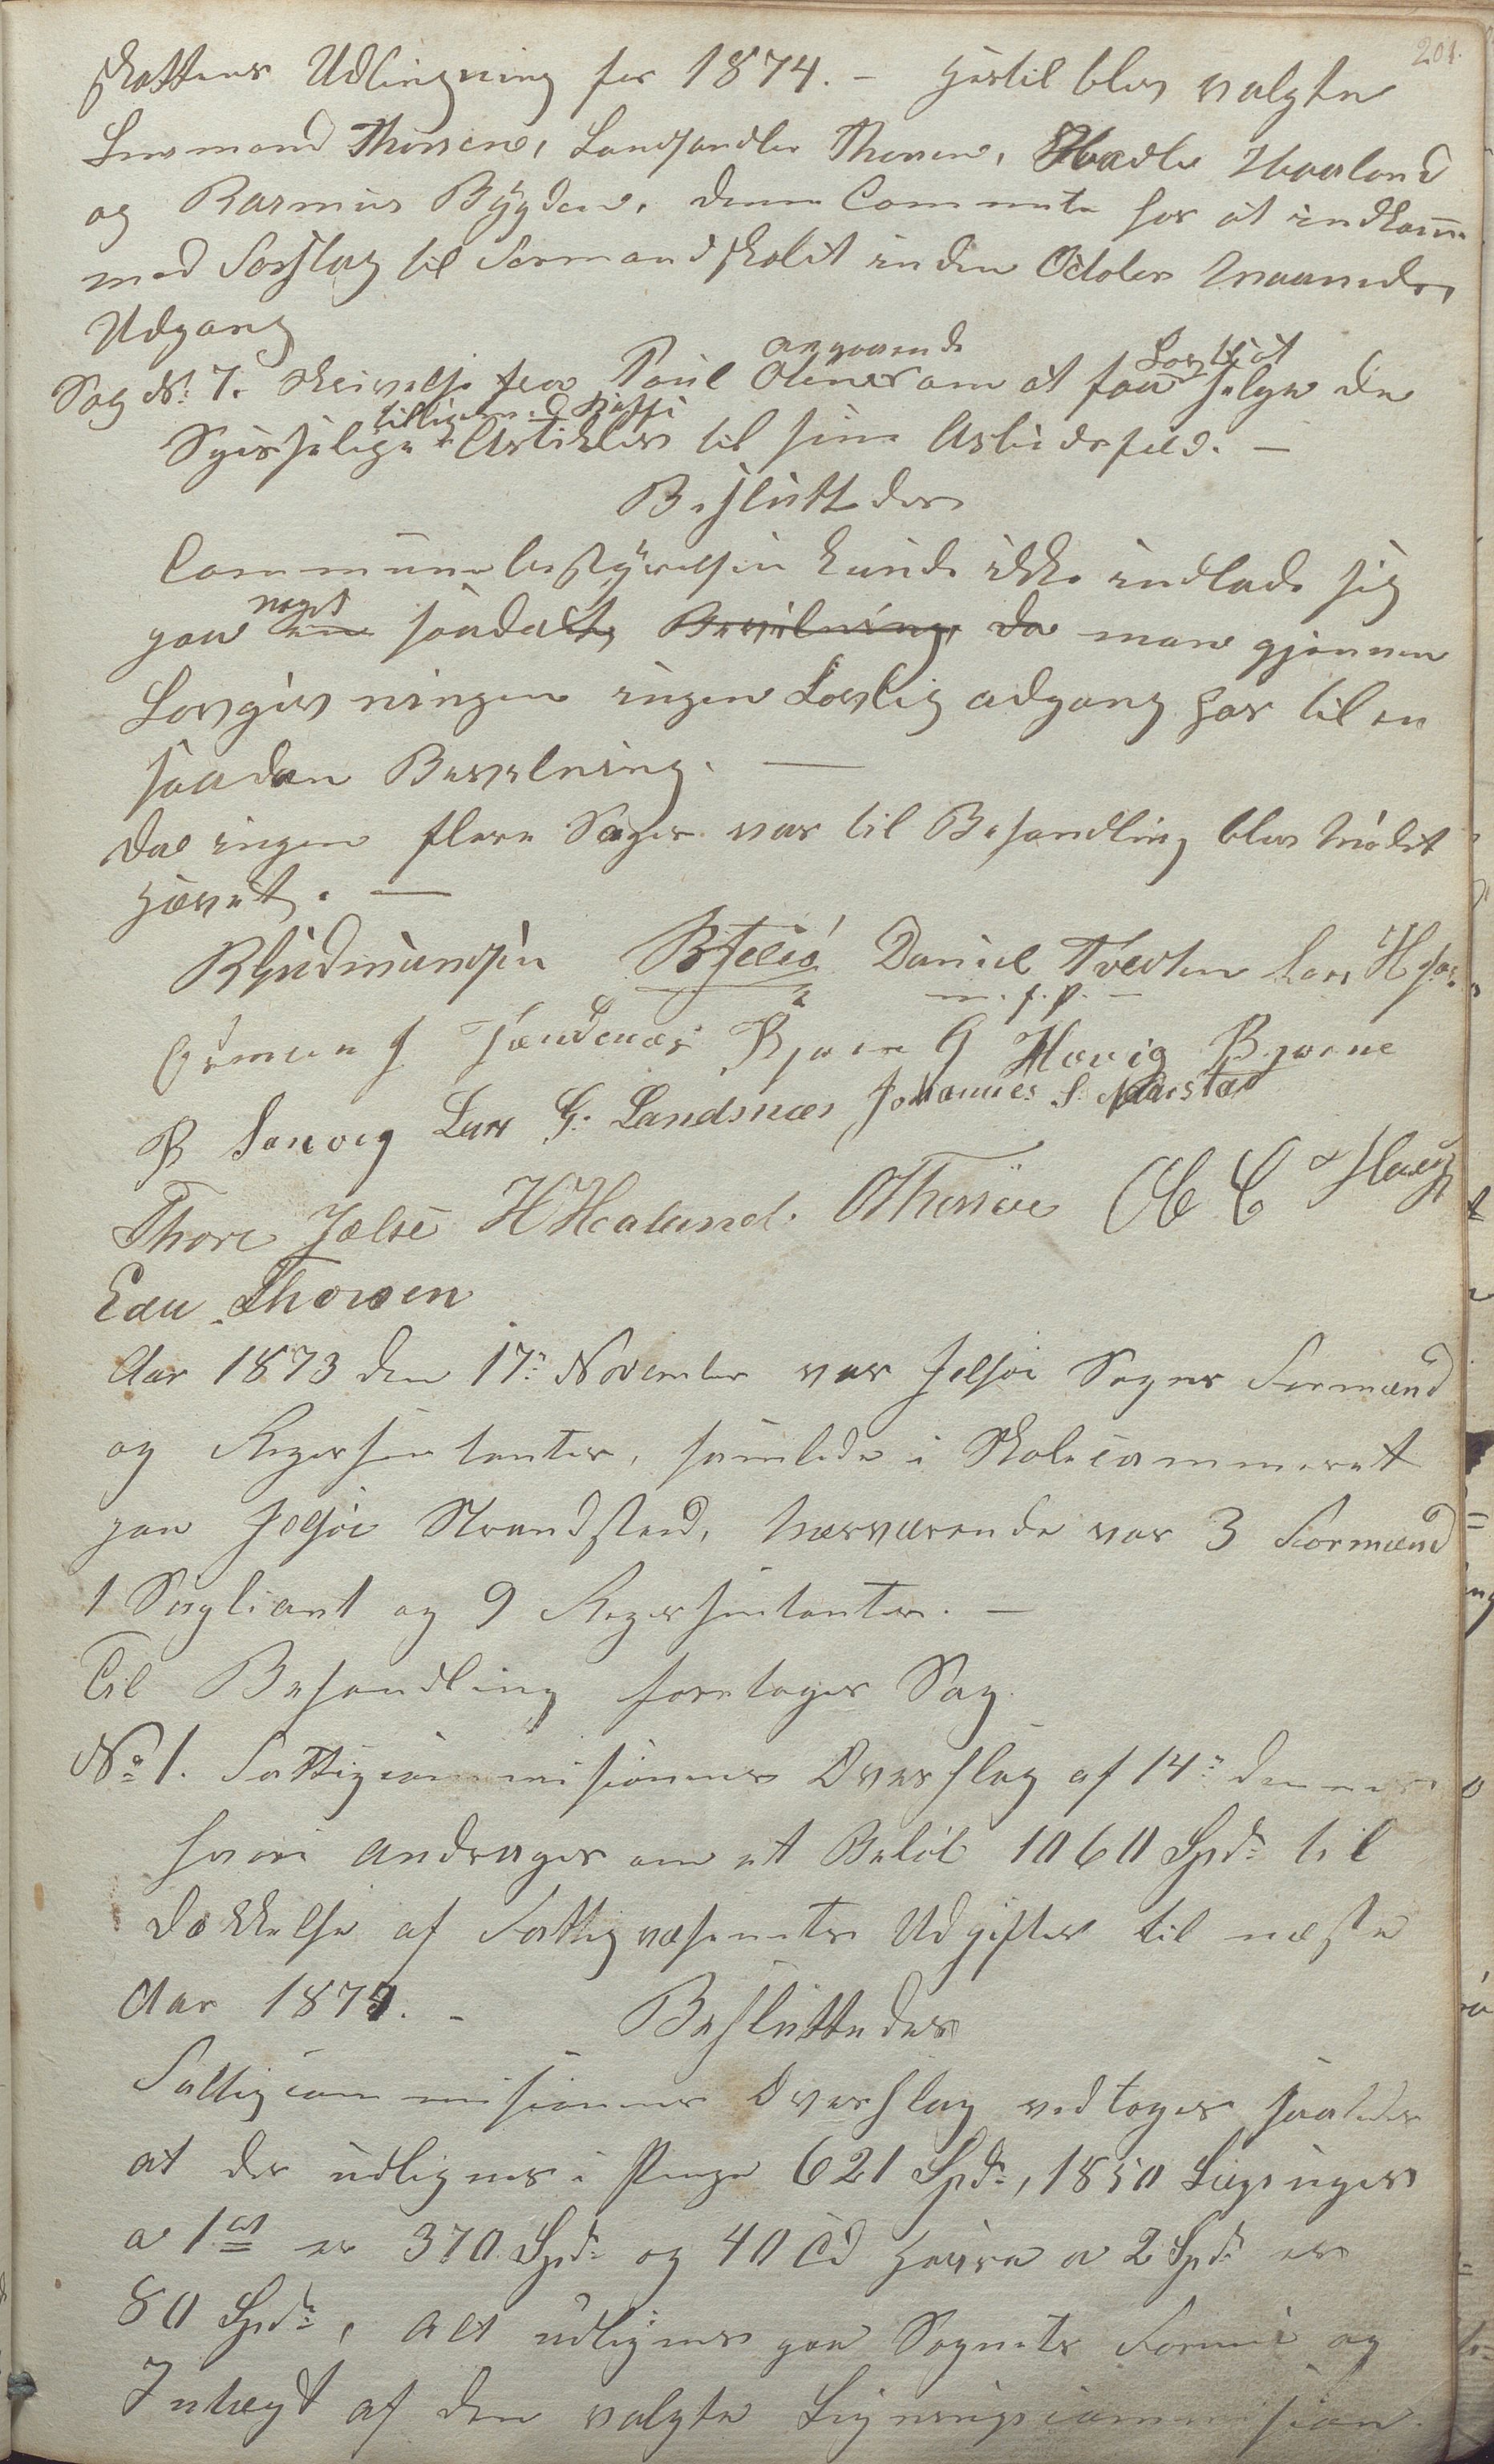 201.
skattens Udligning for 1874. – Hertil blev valgte
Lensmand Thorsen, Landhandler Thorsen, Hadle Haaland
og Rasmus Bøgden. denne Commite har at indkomme
med Forslag til Formandskabet inden October Maaneds
Udgang
Sag No 7. Skrivelse fra Poul Olines angaaende om at faa Lov til at sælge de
Spisselige tilligemed Kaffe Artikler til sine Arbeidsfolk. –
Besluttedes
Communebestyrelsen kunde ikke indlade sig
paa noget saadant, Bevilning, da man gjennem
Lovgivningen ingen Lovlig adgang har til en
saadan Bevilning. —
Da ingen flere Sager var til Behandling blev Mødet
Hævet. —
B Gudmundsen B Jelsø Daniel Tveten Lars H
m. f. p.
Osmun J Sandenæs Bjarne G Hævig Bjarne
B Sanvig Lars G. Landsnæs Johannes S. Nærstad
Thore Jelse H Healand. O Thorsen
Edu. Thorsen
Aar 1873 den 17de November var Jelsøe Sogns Formænd
og Representanter, samlede i Skolecammeret
paa Jelsøe Strandsted, Nærværende var 3 Formænd
1 Supliant og 9 Representanter. –
Til Behandling foretoges Sag.
No 1. Fattigcommisionens Overslag af 14de dennes
hvori andrages om et Beløb 1060 Spd. til
Dækkelse af Fattigvæsenets Udgifter til næste
Aar 1874. – Besluttedes
Fattigcommisionens Overslag vedtages saaledes
at der udlignes i Penge 621 Spd., 1850 Lægninger
a 1 ort er 370 Spd. og 40 Td Havre a 2 Spd er
80 Spd., Alt udlignes paa Sognets Formue og
Indtægt af den valgte Ligningscommision.